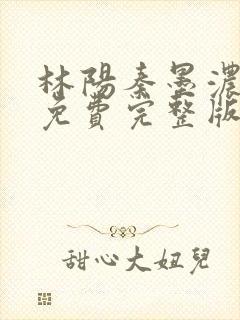 林陽秦墨濃
免費完整版
甜心大妞兒